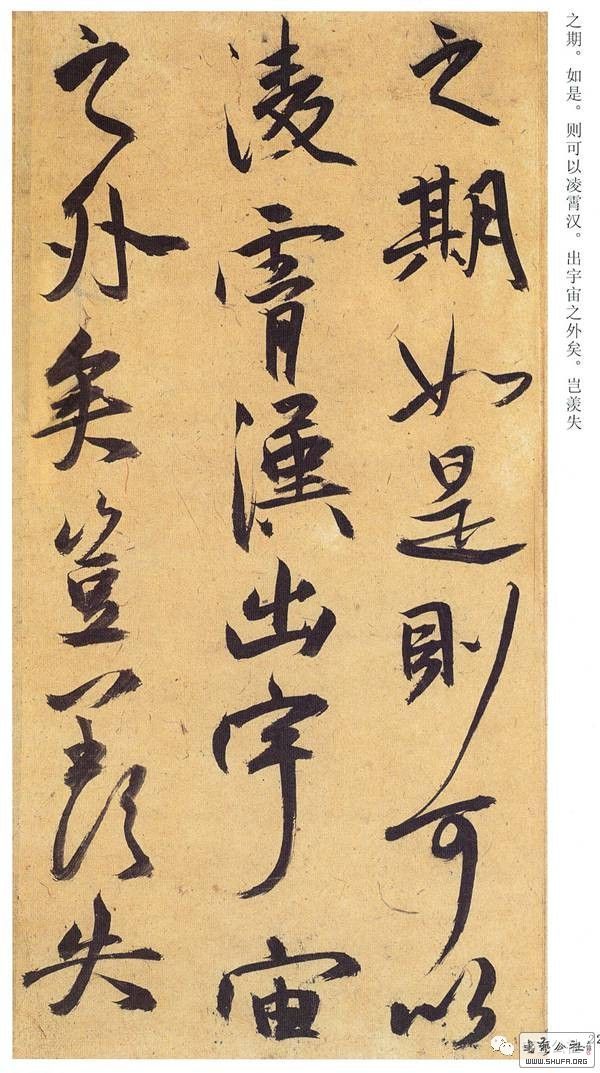 之期。如是。则可以凌霄汉。出宇宙之外矣。岂羡失
之期如是則可以
凌霄漢出宇宙
之外矣豈羨失
22
WWW.SHUFA.ORG